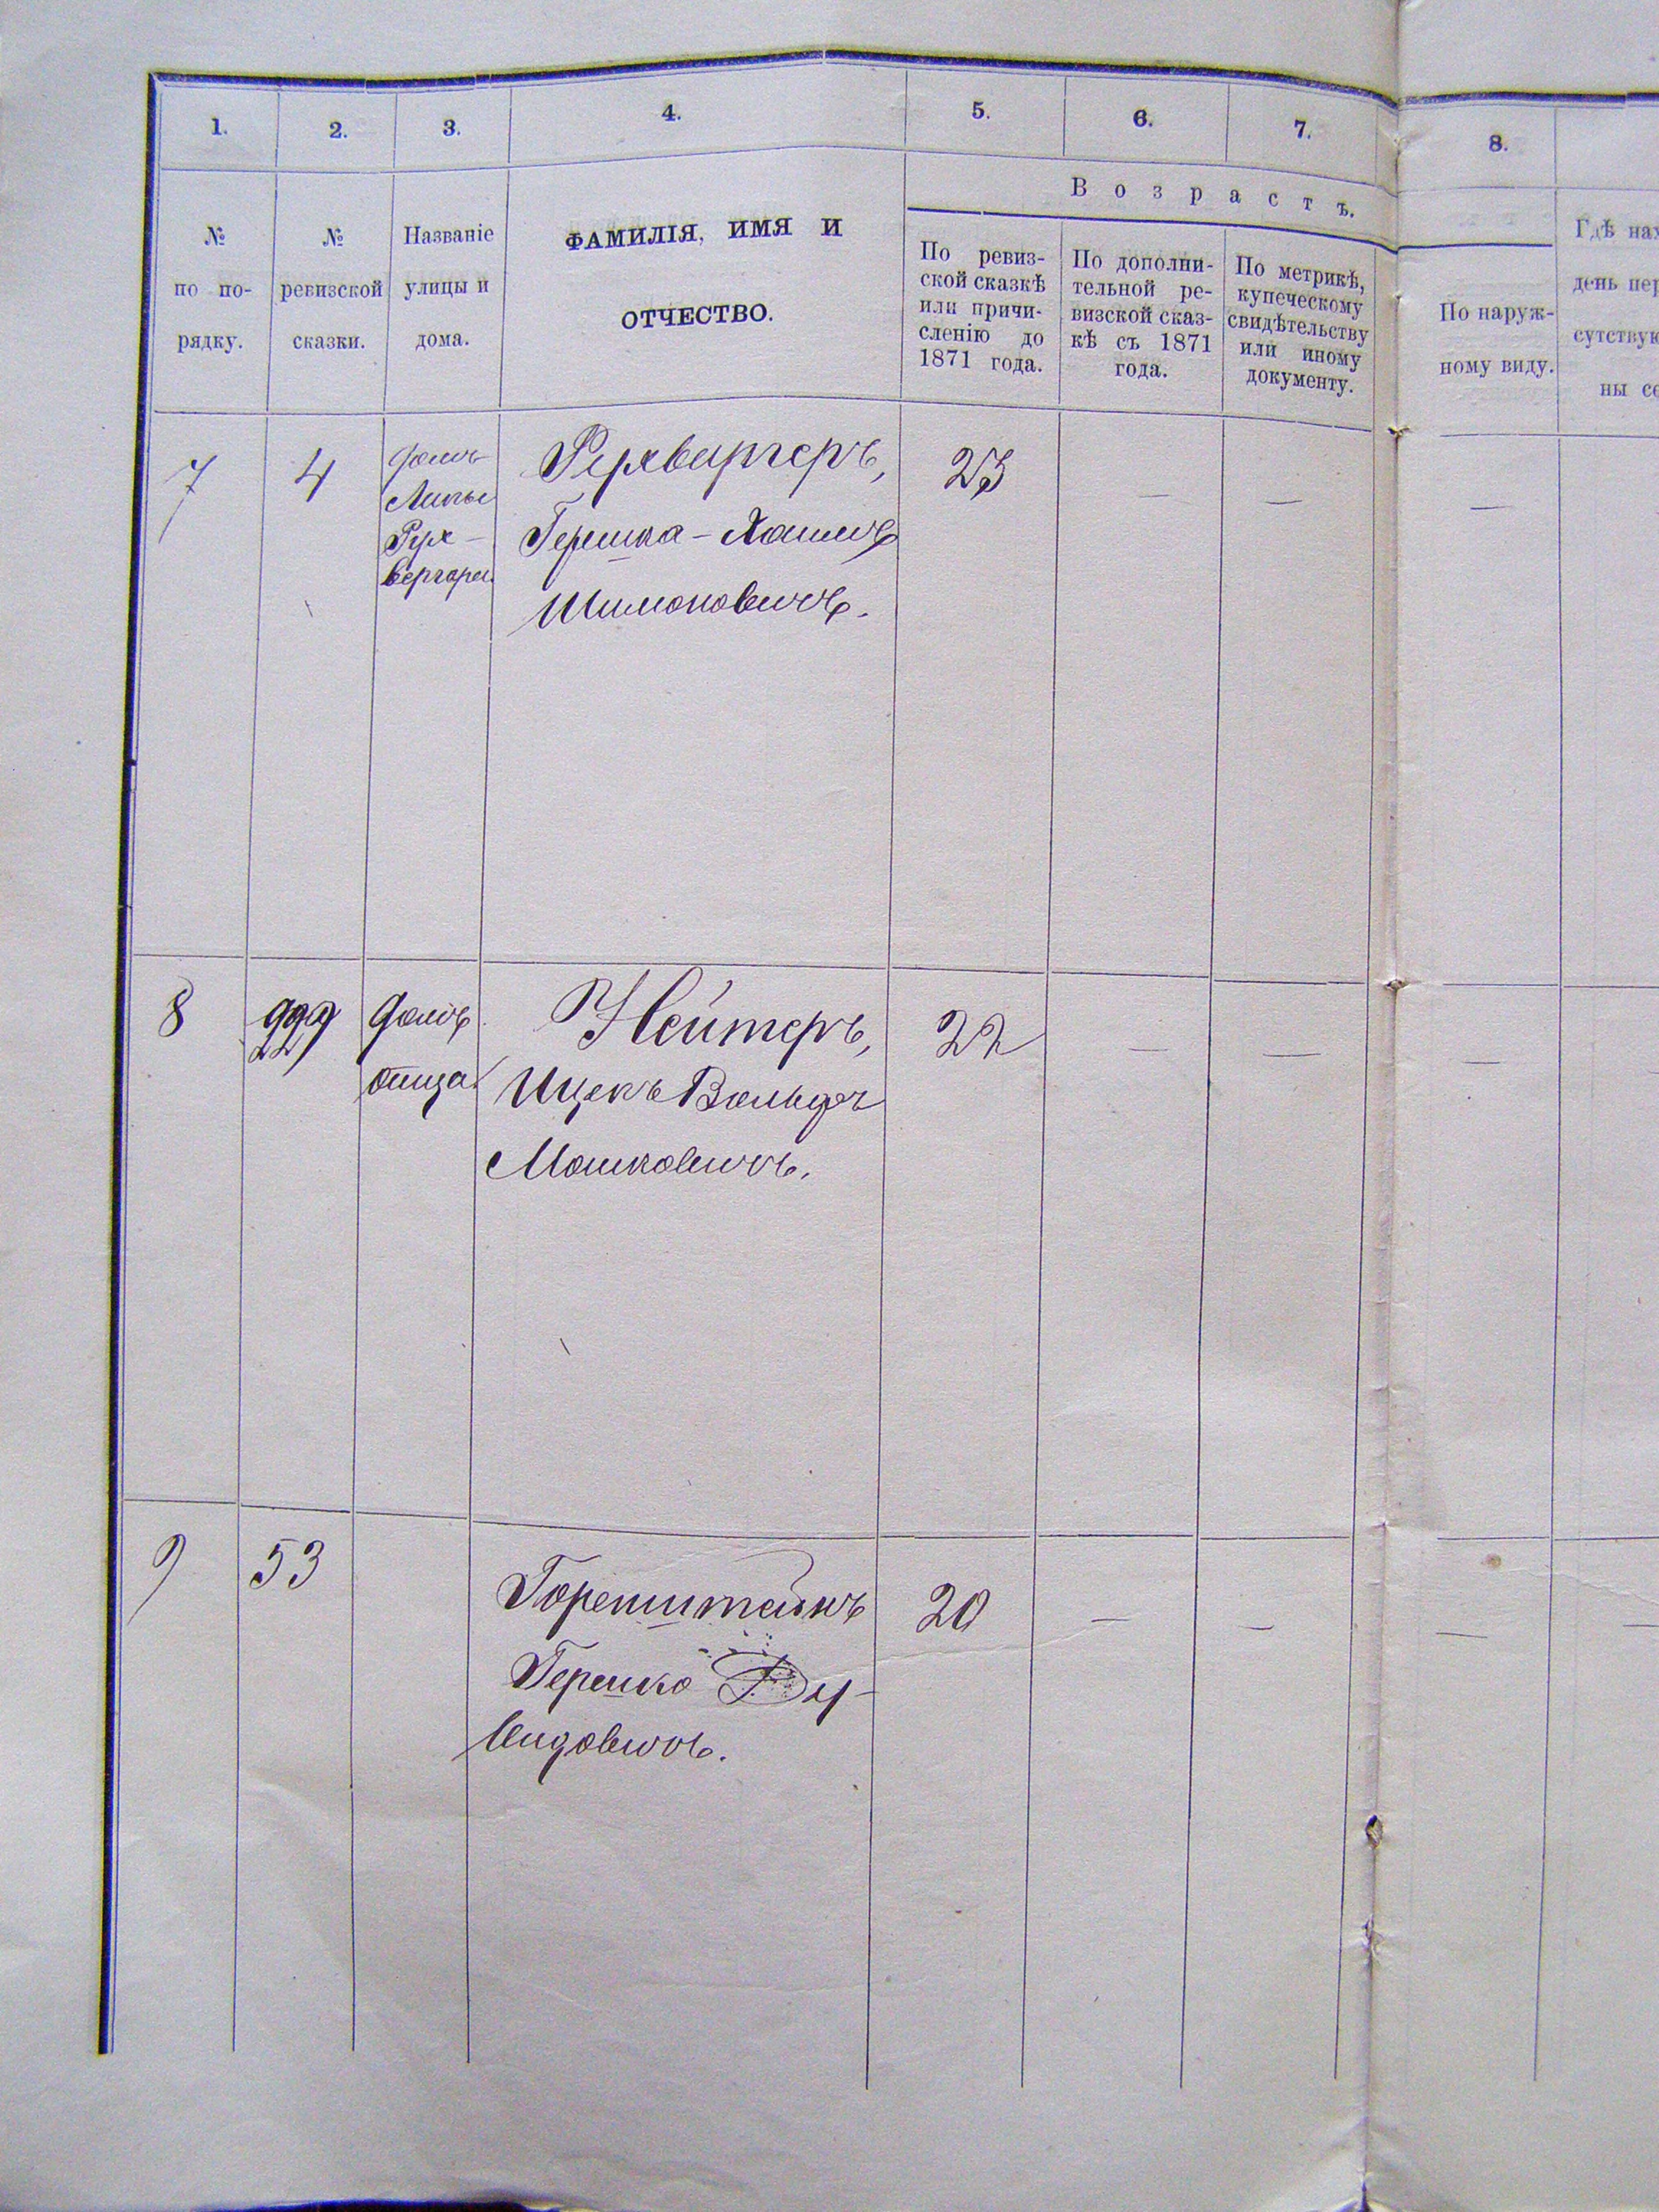 1. 2. 3. 4. 5. 6. 7. 8.
В о з р а с т ъ.
№
по по-
рядку.
№
ревизской
сказки.
Названіе
улицы и
дома.
ФАМИЛІЯ, ИМЯ И
ОТЧЕСТВО.
По ревиз-
ской сказкѣ
или причи-
сленію до
1871 года.
По дополни-
тельной ре-
визской сказ-
кѣ съ 1871
года.
По метрикѣ,
купеческому
свидѣтельству
или иному
документу.
По наруж-
ному виду.
Гдѣ нах
день пер
сутствую
ны се
7
4
домъ
Рехвергеръ,
Гершка-Хаимъ
Шимоновичъ.
23
— — —
8
229
домъ
отца
Нейтеръ,
Ицекъ Вольфъ
Мошковичъ.
22
— — —
9
53
Горенштейнъ
Гершко Ду-
видовичъ.
20
— — —